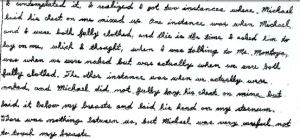 I contemplated it. I realized I got two instances where, Michael
laid his chest on me mixed up. One instance was when Michael
and I were both fully clothed, and this is the time I asked him to
lay on me, which I thought, when I was talking to Mr. Montoya,
was when we were naked but was actually when we were both
fully clothed. The other instance was when we actually were
naked, and Michael did not fully lay his chest on mine but
laid it below my breasts and laid his head on my sternum.
There was nothing between us, but Michael was very careful not
to touch my breasts.